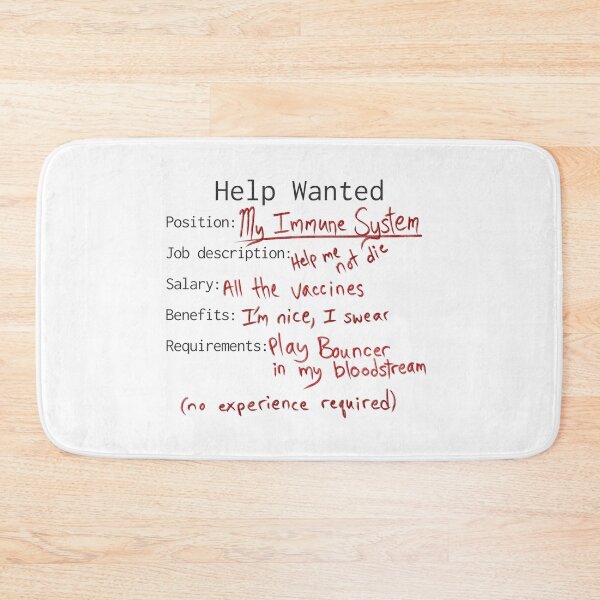 Help Wanted
Position: My Immune System
Job description: Help me not die
Salary: All the vaccines
Benefits: I'm nice, I swear
Requirements: Play Bouncer
in my bloodstream
(no experience required)